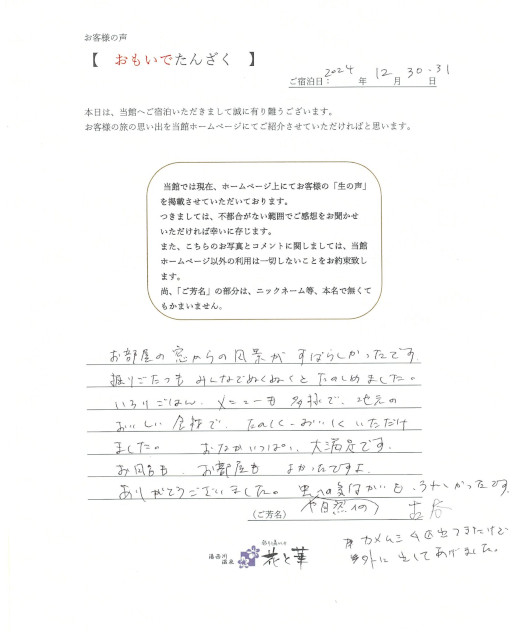 お客様の声
【 おもいでたんざく 】
ご宿泊日: 2024 年 12 月 30・31 日
本日は、当館へご宿泊いただきまして誠に有り難うございます。
お客様の旅の思い出を当館ホームページにてご紹介させていただければと思います。
当館では現在、ホームページ上にてお客様の「生の声」
を掲載させていただいております。
つきましては、不都合がない範囲でご感想をお聞かせ
いただければ幸いに存じます。
また、こちらのお写真とコメントに関しましては、当館
ホームページ以外の利用は一切しないことをお約束致し
ます。
尚、「ご芳名」の部分は、ニックネーム等、本名で無くて
もかまいません。
お部屋の窓からの風景がすばらしかったです
掘りごたつもみんなでぬくぬくとたのしめました。
いろりごはん、メニューも多様で、地元の
おいしい食材で、たのしく・おいしくいただけ
ました。 おなかいっぱい、大満足です。
お風呂も、お部屋も よかったですよ
ありがとうございました。 虫への気づかいも、うれしかったです
(や自然への)
(ご芳名)
カメムシ
外に出してあげました。
湯西川
温泉
花と華